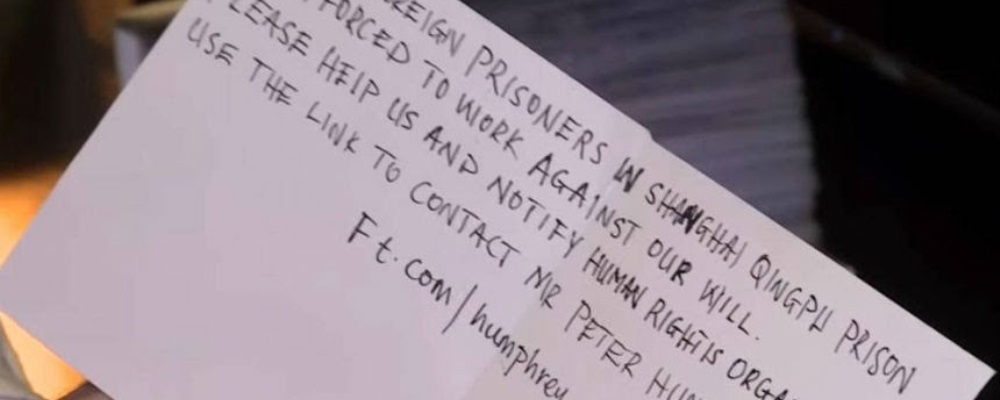 PRISONERS IN SHANGHAI QINGPU PRISON
FORCED TO WORK AGAINST OUR WILL.
HELP US AND NOTIFY HUMAN RIGHTS
USE THE LINK TO CONTACT MR PETER
Ft.com/humphrey